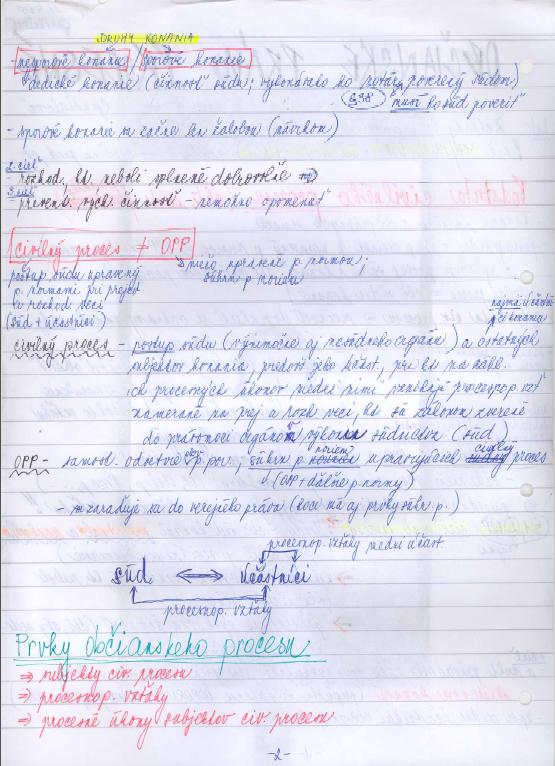 DRUHY KONANIA
- nesporové konanie / sporové konanie
dedičské konanie (činnosť súdu; vykonávané ho notár poverený súdom)
§38 musí ho súd poveriť
- sporové konanie sa začne len žalobou (návrhom)
2. časť - rozhod., kt. neboli splnené dobrovoľne
3. časť - prevent. vých. činnosť - nemožno opomenúť
civilný proces ≠ OPP
postup súdu upravený
p. normami pri prejed.
a rozhod. veci
(súd + účastníci)
práv. upravené p. normou;
súhrn p. noriem
najmä účastníci konania
civilný proces - postup súdu (výnimočne aj nesúdneho orgánu) a ostatných
subjektov konania, predst. jeho súčasť, pri kt. na zákl.
ich procesných úkonov medzi nimi vznikajú procesnop. vzť.
zamerané na prej. a rozh. veci, kt. sú zákonom zverené
do právomoci orgánom výkonu súdnictva (súd)
OPP - samost. odvetvie slov. p. por., súhrn p. noriem upravujúcich civilný proces
(OPP + ďalšie p. normy)
- zaraďuje sa do verejného práva (hoci má aj prvky súkr. p.)
procesnop. vzťahy medzi účast.
súd ⟺ účastníci
procesnop. vzťahy
Prvky občianskeho procesu
⇒ subjekty civ. procesu
⇒ procesnop. vzťahy
⇒ procesné úkony subjektov civ. procesu
-2-